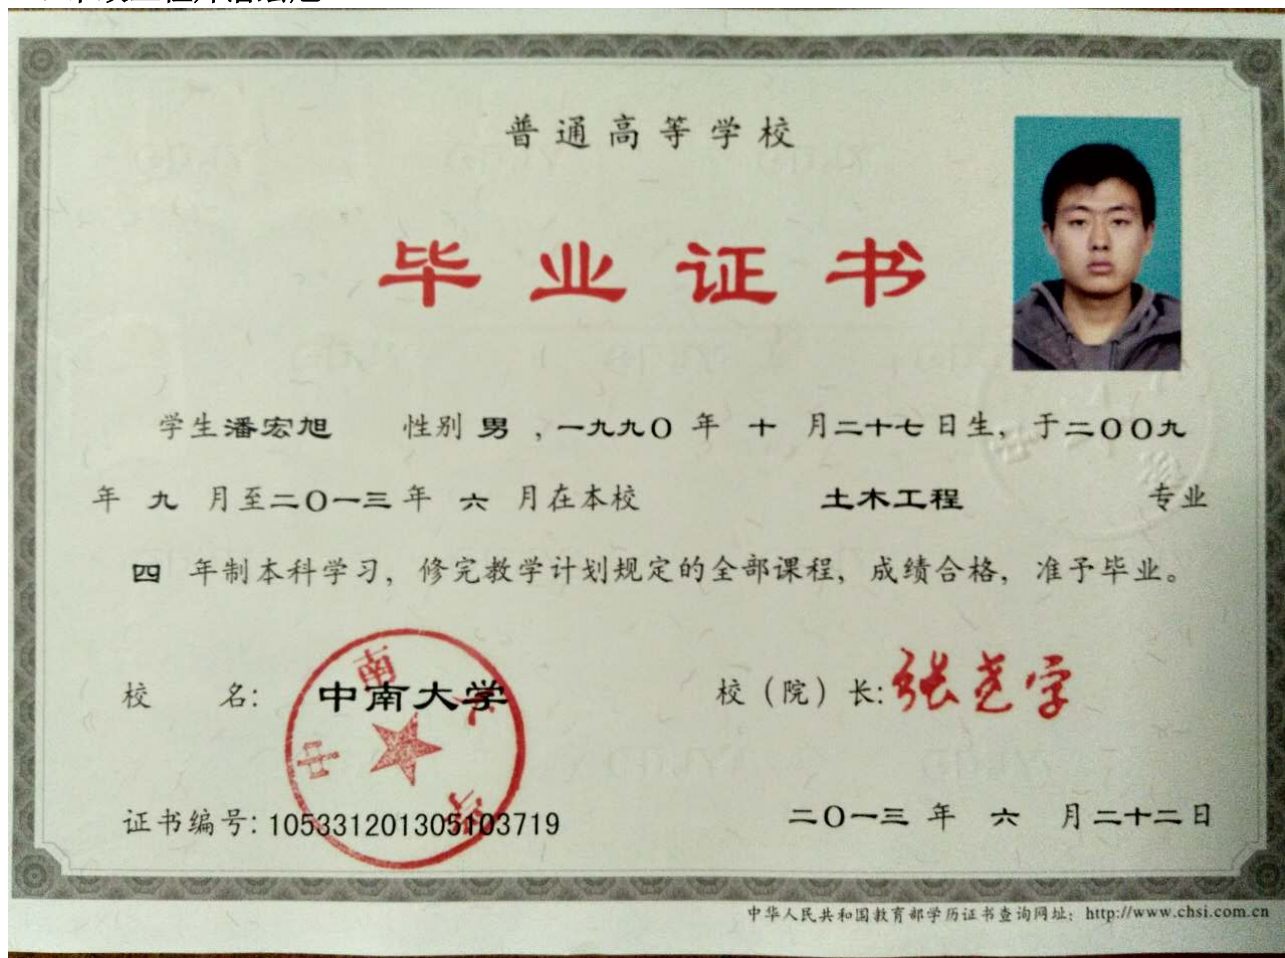 普通高等学校
毕业证书
学生潘宏旭 性别 男 ,一九九〇 年 十 月二十七日生, 于二〇〇九
年 九 月至二〇一三年 六 月在本校 土木工程 专业
四 年制本科学习, 修完教学计划规定的全部课程, 成绩合格, 准予毕业。
校 名: 中南大学
校(院)长: 张尧学
中南大学
证书编号: 105331201305103719
二〇一三 年 六 月二十二日
中华人民共和国教育部学历证书查询网址: http://www.chsi.com.cn